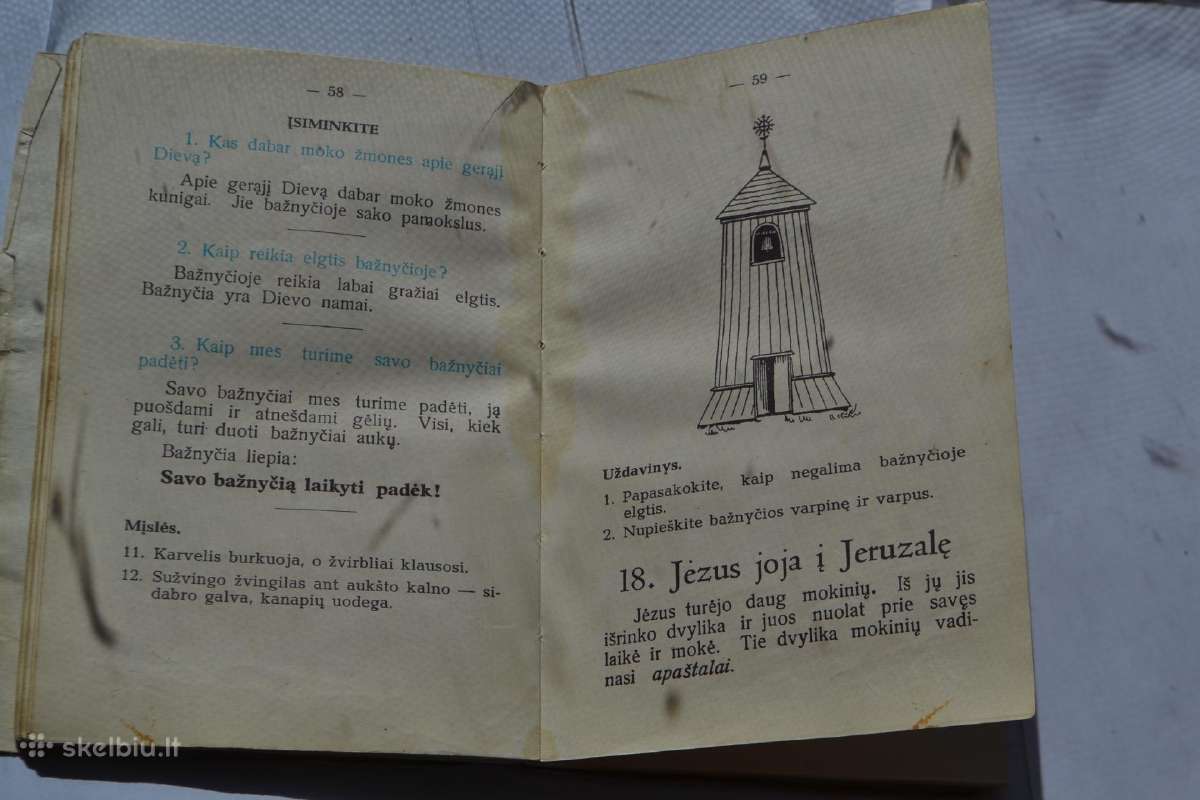 — 58 —
ĮSIMINKITE
1. Kas dabar moko žmones apie gerąjį
Dievą?
Apie gerąjį Dievą dabar moko žmones
kunigai. Jie bažnyčioje sako pamokslus.
2. Kaip reikia elgtis bažnyčioje?
Bažnyčioje reikia labai gražiai elgtis.
Bažnyčia yra Dievo namai.
3. Kaip mes turime savo bažnyčiai
padėti?
Savo bažnyčiai mes turime padėti, ją
puošdami ir atnešdami gėlių. Visi, kiek
gali, turi duoti bažnyčiai aukų.
Bažnyčia liepia:
Savo bažnyčią laikyti padėk!
Mįslės.
11. Karvelis burkuoja, o žvirbliai klausosi.
12. Sužvingo žvingilas ant aukšto kalno — si-
dabro galva, kanapių uodega.
— 59 —
Uždavinys.
1. Papasakokite, kaip negalima bažnyčioje
elgtis.
2. Nupieškite bažnyčios varpinę ir varpus.
18. Jėzus joja į Jeruzalę
Jėzus turėjo daug mokinių. Iš jų jis
išrinko dvylika ir juos nuolat prie savęs
laikė ir mokė. Tie dvylika mokinių vadi-
nasi apaštalai.
skelbiu.lt